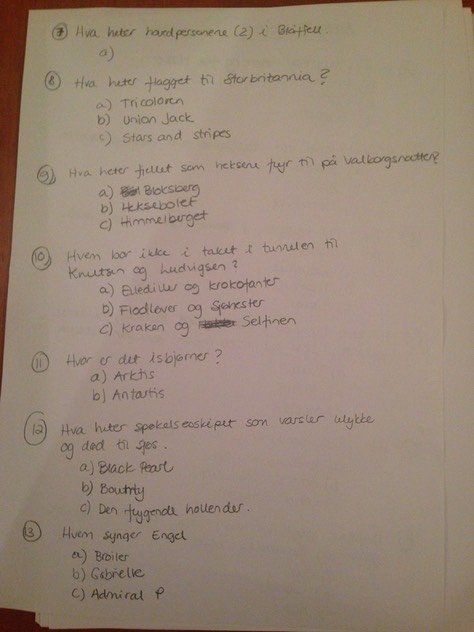 7 Hva heter hovedpersonene (2) i Blåfjell.
a)
8 Hva heter flagget til Storbritannia?
a) Tricoloren
b) Union Jack
c) Stars and stripes
9) Hva heter fjellet som heksene flyr til på Valborgsnatten?
a) Bloksberg
b) Heksebolet
c) Himmelberget
10) Hvem bor ikke i taket i tunnelen til
Knutsen og Ludvigsen?
a) Ellediller og krokofanter
b) Flodløver og Sjøhester
c) Kraken og Selfinen
11 Hvor er det isbjørner?
a) Arktis
b) Antartis
12 Hva heter spøkelsesskipet som varsler ulykke
og død til sjøs.
a) Black Pearl
b) Bounty
c) Den flygende hollender.
13 Hvem synger Engel
a) Broiler
b) Gabrielle
c) Admiral P